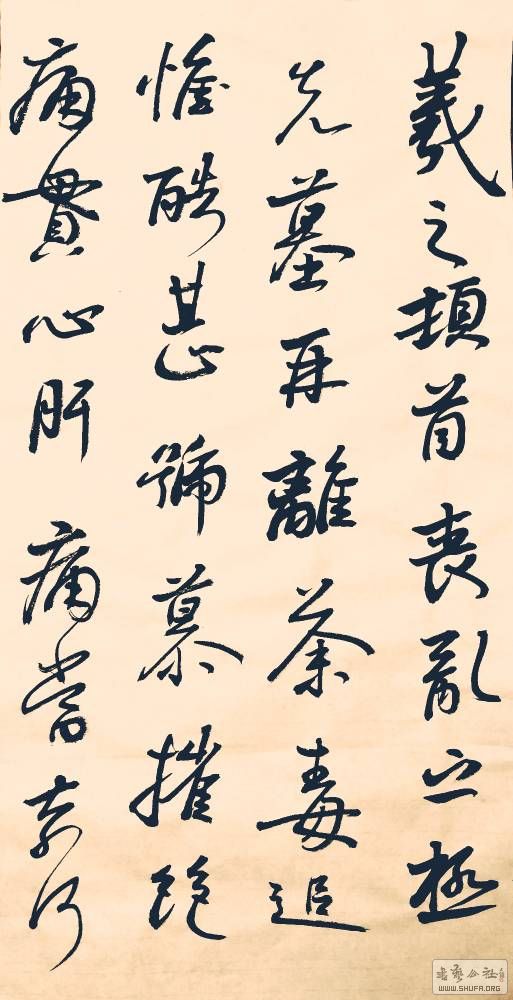 羲之頓首喪亂之極
先墓再離荼毒追
惟酷甚號慕摧絕
痛貫心肝 痛當奈何
書藝公社
WWW.SHUFA.ORG